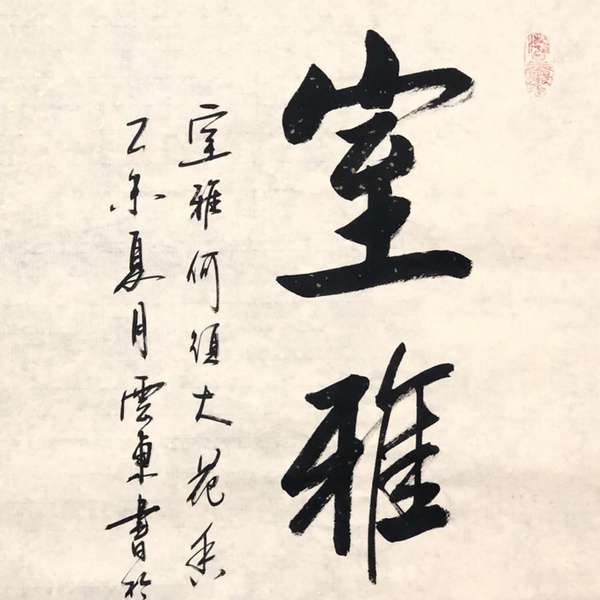 室雅
室雅何須大花香
乙未夏月雲東書於